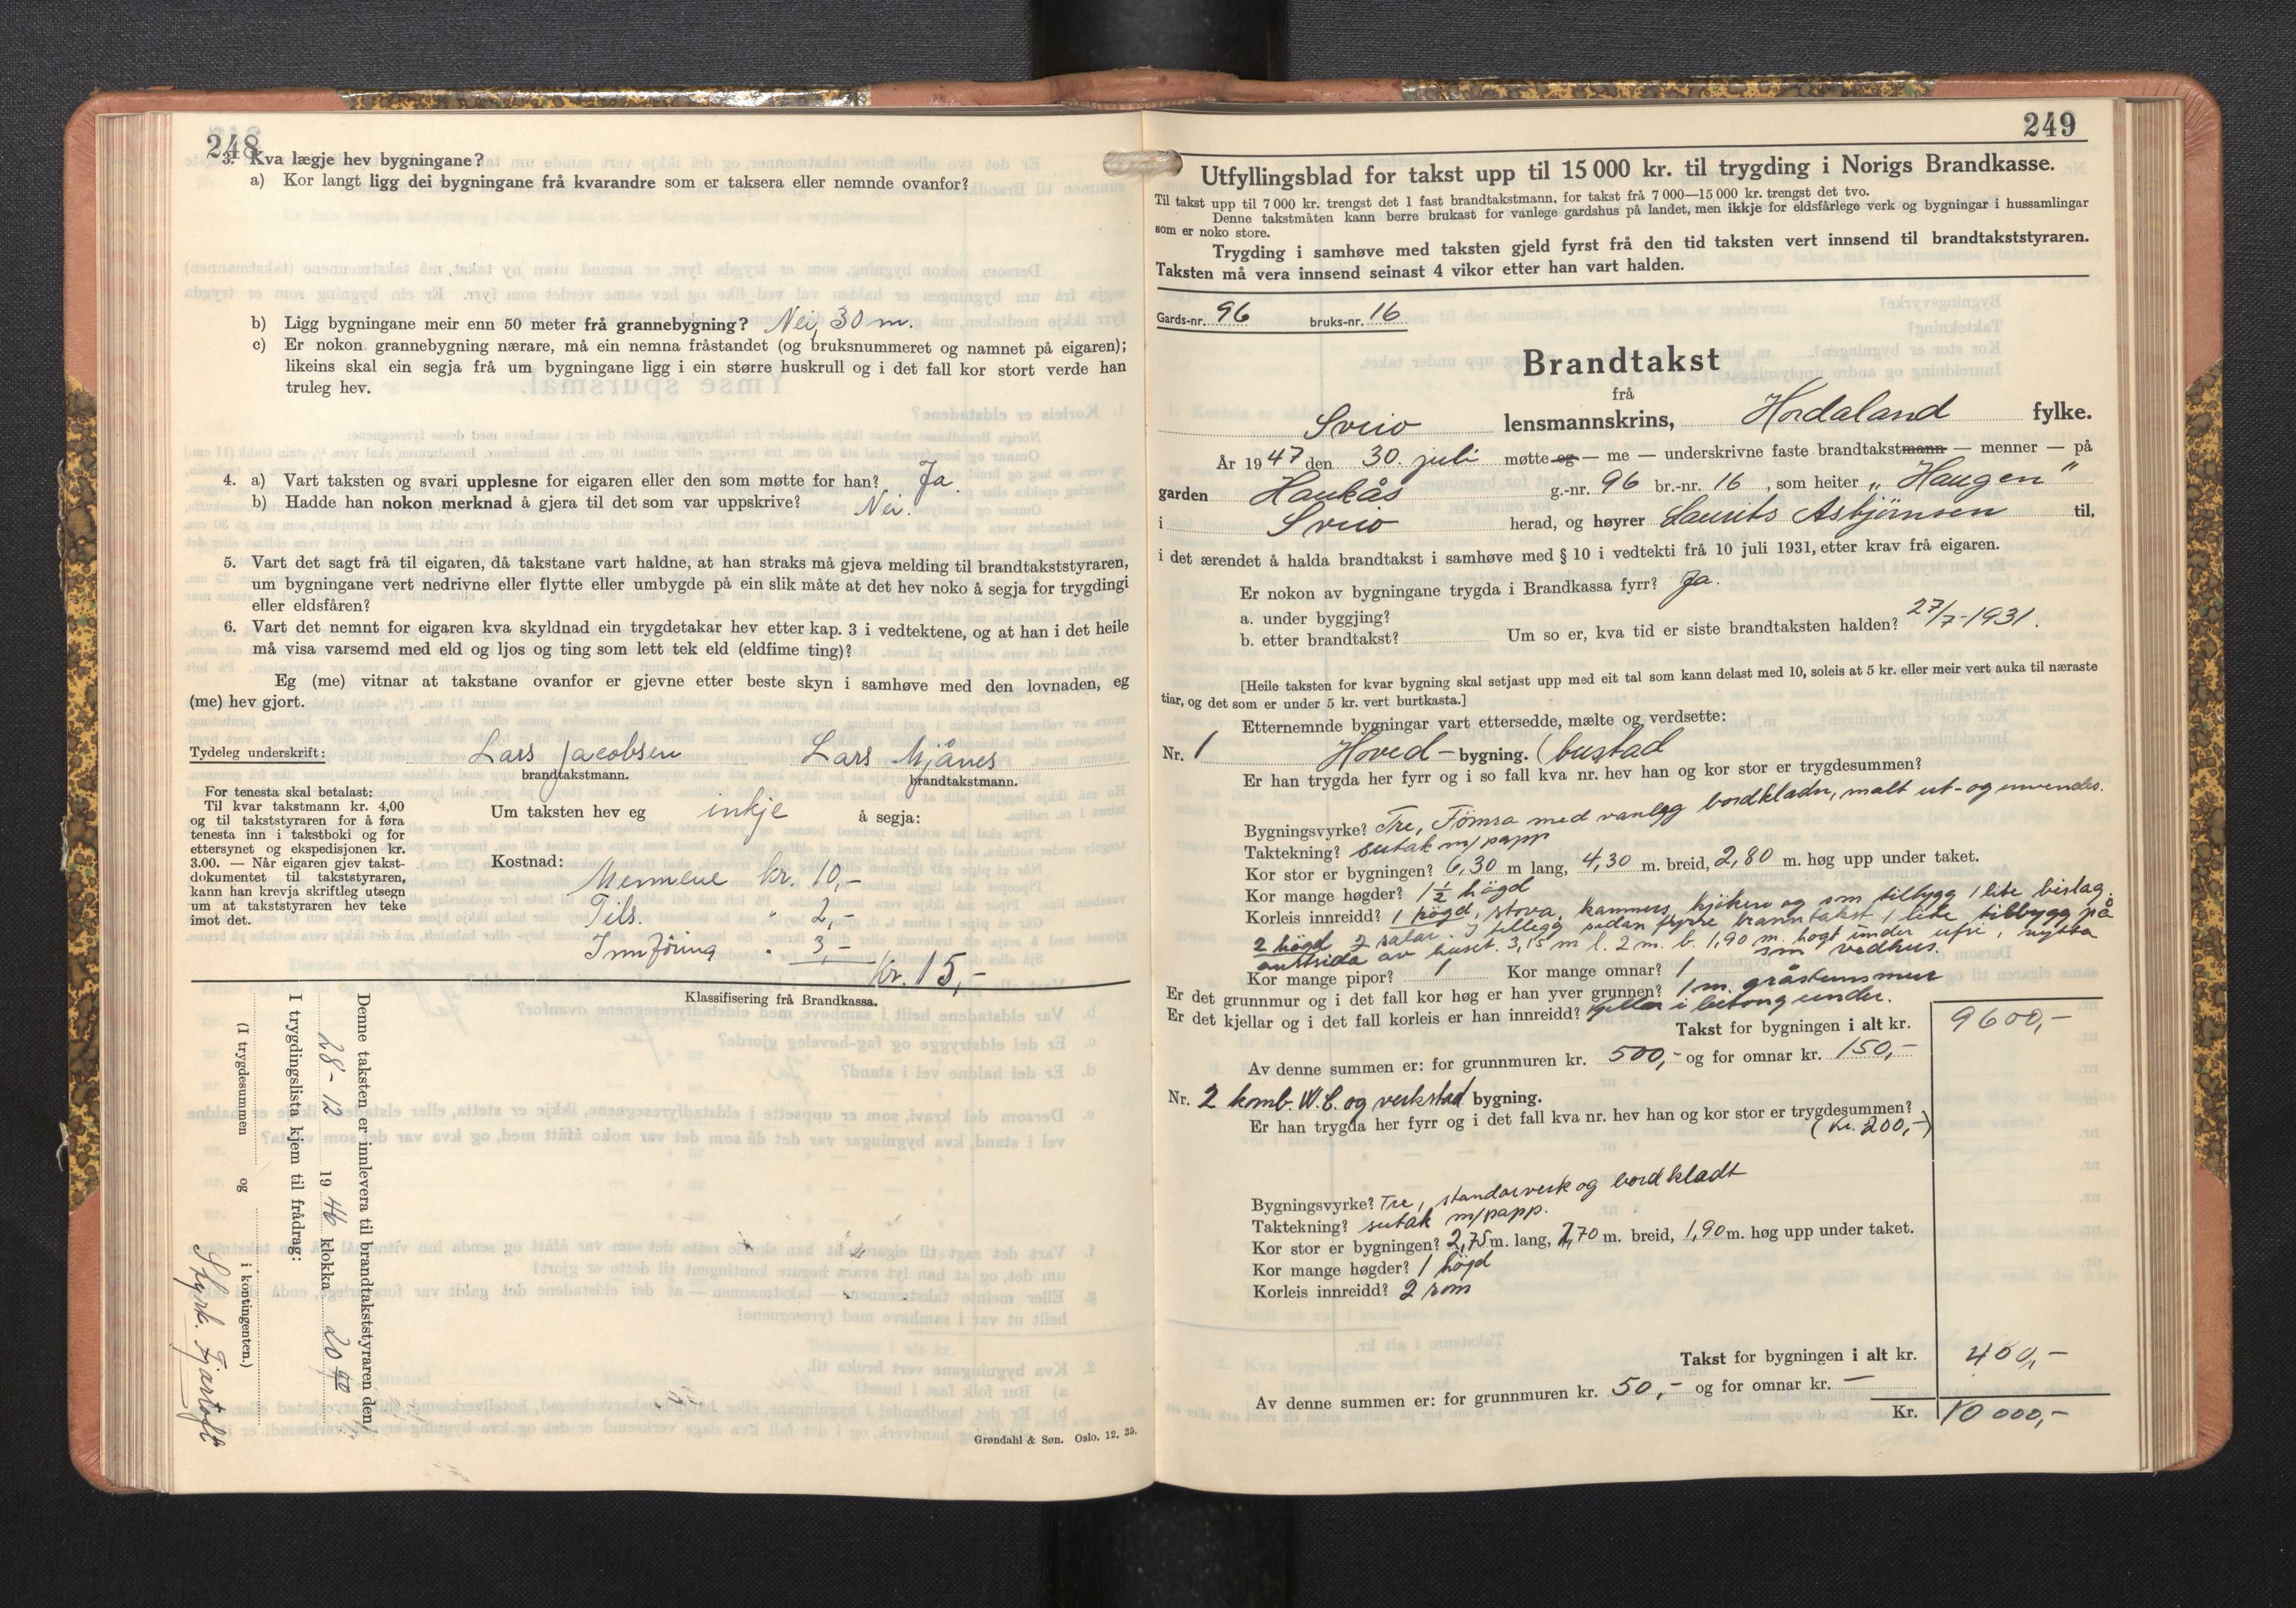 248
3. Kva lægje hev bygningane?
a) Kor langt ligg dei bygningane frå kvarandre som er taksera eller nemnde ovanfor?
b) Ligg bygningane meir enn 50 meter frå grannebygning? Nei, 30 m.
c) Er nokon grannebygning nærare, må ein nemna fråstandet (og bruksnummeret og namnet på eigaren);
likeins skal ein segja frå um bygningane ligg i ein større huskrull og i det fall kor stort verde han
truleg hev.
4. a) Vart taksten og svari upplesne for eigaren eller den som møtte for han? Ja.
b) Hadde han nokon merknad å gjera til det som var uppskrive? Nei.
5. Vart det sagt frå til eigaren, då takstane vart haldne, at han straks må gjeva melding til brandtakststyraren,
um bygningane vert nedrivne eller flytte eller umbygde på ein slik måte at det hev noko å segja for trygdingi
eller eldsfåren?
6. Vart det nemnt for eigaren kva skyldnad ein trygdetakar hev etter kap. 3 i vedtektene, og at han i det heile
må visa varsemd med eld og ljos og ting som lett tek eld (eldfime ting)?
Eg (me) vitnar at takstane ovanfor er gjevne etter beste skyn i samhøve med den lovnaden, eg
(me) hev gjort.
Tydeleg underskrift: Lars Jacobsen Lars Mjånes
brandtakstmann. brandtakstmann.
For tenesta skal betalast:
Til kvar takstmann kr. 4,00
og til takststyraren for å føra
tenesta inn i takstboki og for
ettersynet og ekspedisjonen kr.
3.00. — Når eigaren gjev takst-
dokumentet til takststyraren,
kann han krevja skriftleg utsegn
um at takststyraren hev teke
imot det.
Um taksten hev eg inkje å segja:
Kostnad:
Mennene kr. 10,-
Tils. " 2,-
Innføring " 3,-
Kr. 15,-
Klassifisering frå Brandkassa.
Denne taksten er innlevera til brandtakststyraren den
28-12 1946 klokka 20
I trygdingslista kjem til frådrag:
(I trygdesummen og i kontingenten.)
Styrk. Fjartoft
Grøndahl & Søn. Oslo. 12. 35.
249
Utfyllingsblad for takst upp til 15 000 kr. til trygding i Norigs Brandkasse.
Til takst upp til 7 000 kr. trengst det 1 fast brandtakstmann, for takst frå 7 000—15 000 kr. trengst det tvo.
Denne takstmåten kann berre brukast for vanlege gardshus på landet, men ikkje for eldsfårlege verk og bygningar i hussamlingar
som er noko store.
Trygding i samhøve med taksten gjeld fyrst frå den tid taksten vert innsend til brandtakststyraren.
Taksten må vera innsend seinast 4 vikor etter han vart halden.
Gards-nr. 96 bruks-nr. 16
Brandtakst
frå
Sveio lensmannskrins, Hordaland fylke.
År 1947 den 30. juli møtte eg — me — underskrivne faste brandtakstmann — menner — på
garden Haukås g.-nr. 96 br.-nr. 16, som heiter „ Haugen "
i Sveio herad, og høyrer Laurits Asbjørnsen til,
i det ærendet å halda brandtakst i samhøve med § 10 i vedtekti frå 10 juli 1931, etter krav frå eigaren.
Er nokon av bygningane trygda i Brandkassa fyrr? Ja.
a. under byggjing?
b. etter brandtakst? Um so er, kva tid er siste brandtaksten halden? 27/7-1931.
[Heile taksten for kvar bygning skal setjast upp med eit tal som kann delast med 10, soleis at 5 kr. eller meir vert auka til næraste
tiar, og det som er under 5 kr. vert burtkasta.]
Etternemnde bygningar vart ettersedde, mælte og verdsette:
Nr. 1 Hoved-bygning. (bustad
Er han trygda her fyrr og i so fall kva nr. hev han og kor stor er trygdesummen?
Bygningsvyrke? Tre, Tømra med vanlegg bordkladn, malt ut- og innvendes.
Taktekning? sutak m/papp
Kor stor er bygningen? 6,30 m lang, 4,30 m. breid, 2,80 m. høg upp under taket.
Kor mange høgder? 1½ högd
Korleis innreidd? 1 högd, stova, kammers, kjöken og som tilbygg 1 lite bislag.
2 högd 2 salar. I tillegg sidan fyrre branntakst 1 lite tilbygg på
austsida av huset. 3,15 m l. 2 m. b. 1,90 m. högt under ufsi, nytta
som vedhus.
Kor mange pipor? 1 Kor mange omnar? 1
Er det grunnmur og i det fall kor høg er han yver grunnen? 1 m. gråsteinsmur
Er det kjellar og i det fall korleis er han innreidd? Kjellar i betong under.
Takst for bygningen i alt kr. 9600,-
Av denne summen er: for grunnmuren kr. 500,- og for omnar kr. 150,-
Nr. 2 komb. W.C. og verkstad bygning.
Er han trygda her fyrr og i det fall kva nr. hev han og kor stor er trygdesummen?
(kr. 200,-)
Bygningsvyrke? Tre, standarverk og bordkladt
Taktekning? sutak m/papp.
Kor stor er bygningen? 2,75 m. lang, 2,70 m. breid, 1,90 m. høg upp under taket.
Kor mange høgder? 1 högd
Korleis innreidd? 2 rom
Takst for bygningen i alt kr. 400,-
Av denne summen er: for grunnmuren kr. 50,- og for omnar kr. —
Kr. 10 000,-